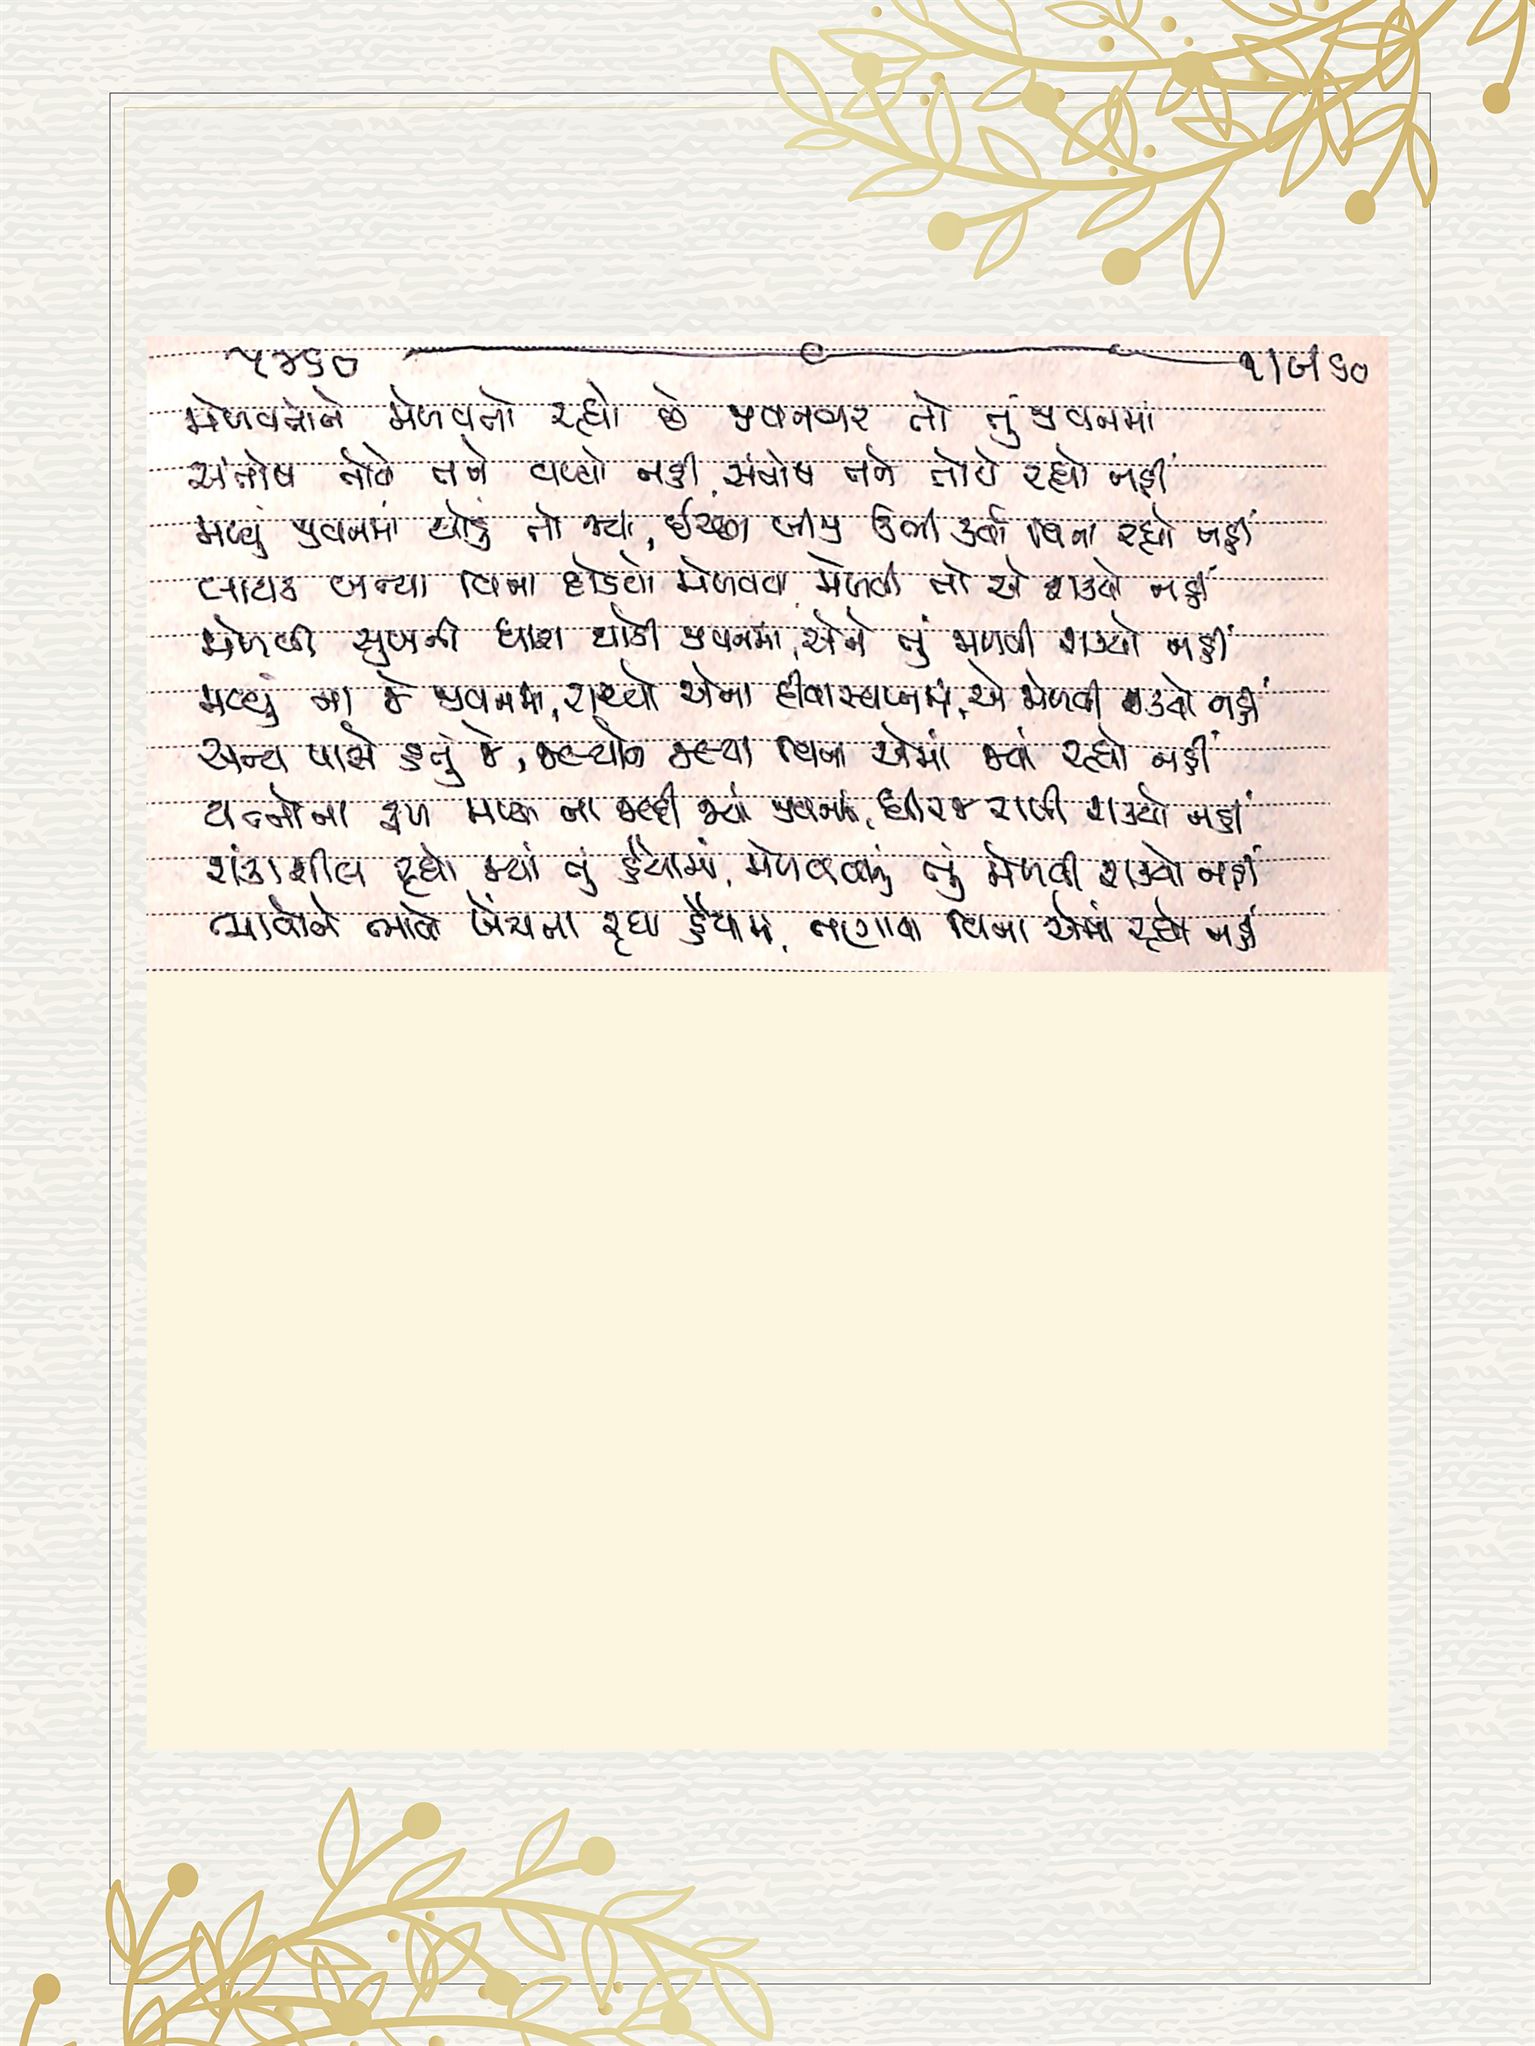 ૫૪૬૦ ૧/૮/૬૦
મેળવતોને મેળવતો રહ્યો છે જીવનભર તો તું જીવનમાં
સંતોષ તોયે તને વળ્યો નહીં, સંતોષ તને તોયે રહ્યો નહીં
મળ્યું જીવનમાં થોડું તો જ્યાં, ઈચ્છા બીજી ઊભી કર્યા વિના રહ્યો નહીં
લાયક બન્યા વિના દોડયો મેળવવા મેળવી તો એ શક્યો નહીં
મેળવી સુખની ધારા થોડી જીવનમાં, એને તું મેળવી શક્યો નહીં
મળ્યું ના જે જીવનમાં, રાચ્યો એના દીવાસ્વપ્નમાં, એ મેળવી શક્યો નહીં
અન્ય પાસે હતું જે, જલ્યો જલ્યા વિના એમાં જ્યાં રહ્યો નહીં
યત્નોના ફળ મળ્યા ના જલ્દી જ્યાં જીવનમાં, ધીરજ રાખી શક્યો નહીં
શંકાશીલ રહ્યો જ્યાં તું હૈયામાં, મેળવવાનું તું મેળવી શક્યો નહીં
ભાવોને ભાવો ખેંચતા રહ્યા હૈયામાં, તણાયા વિના એમાં રહ્યો નહીં